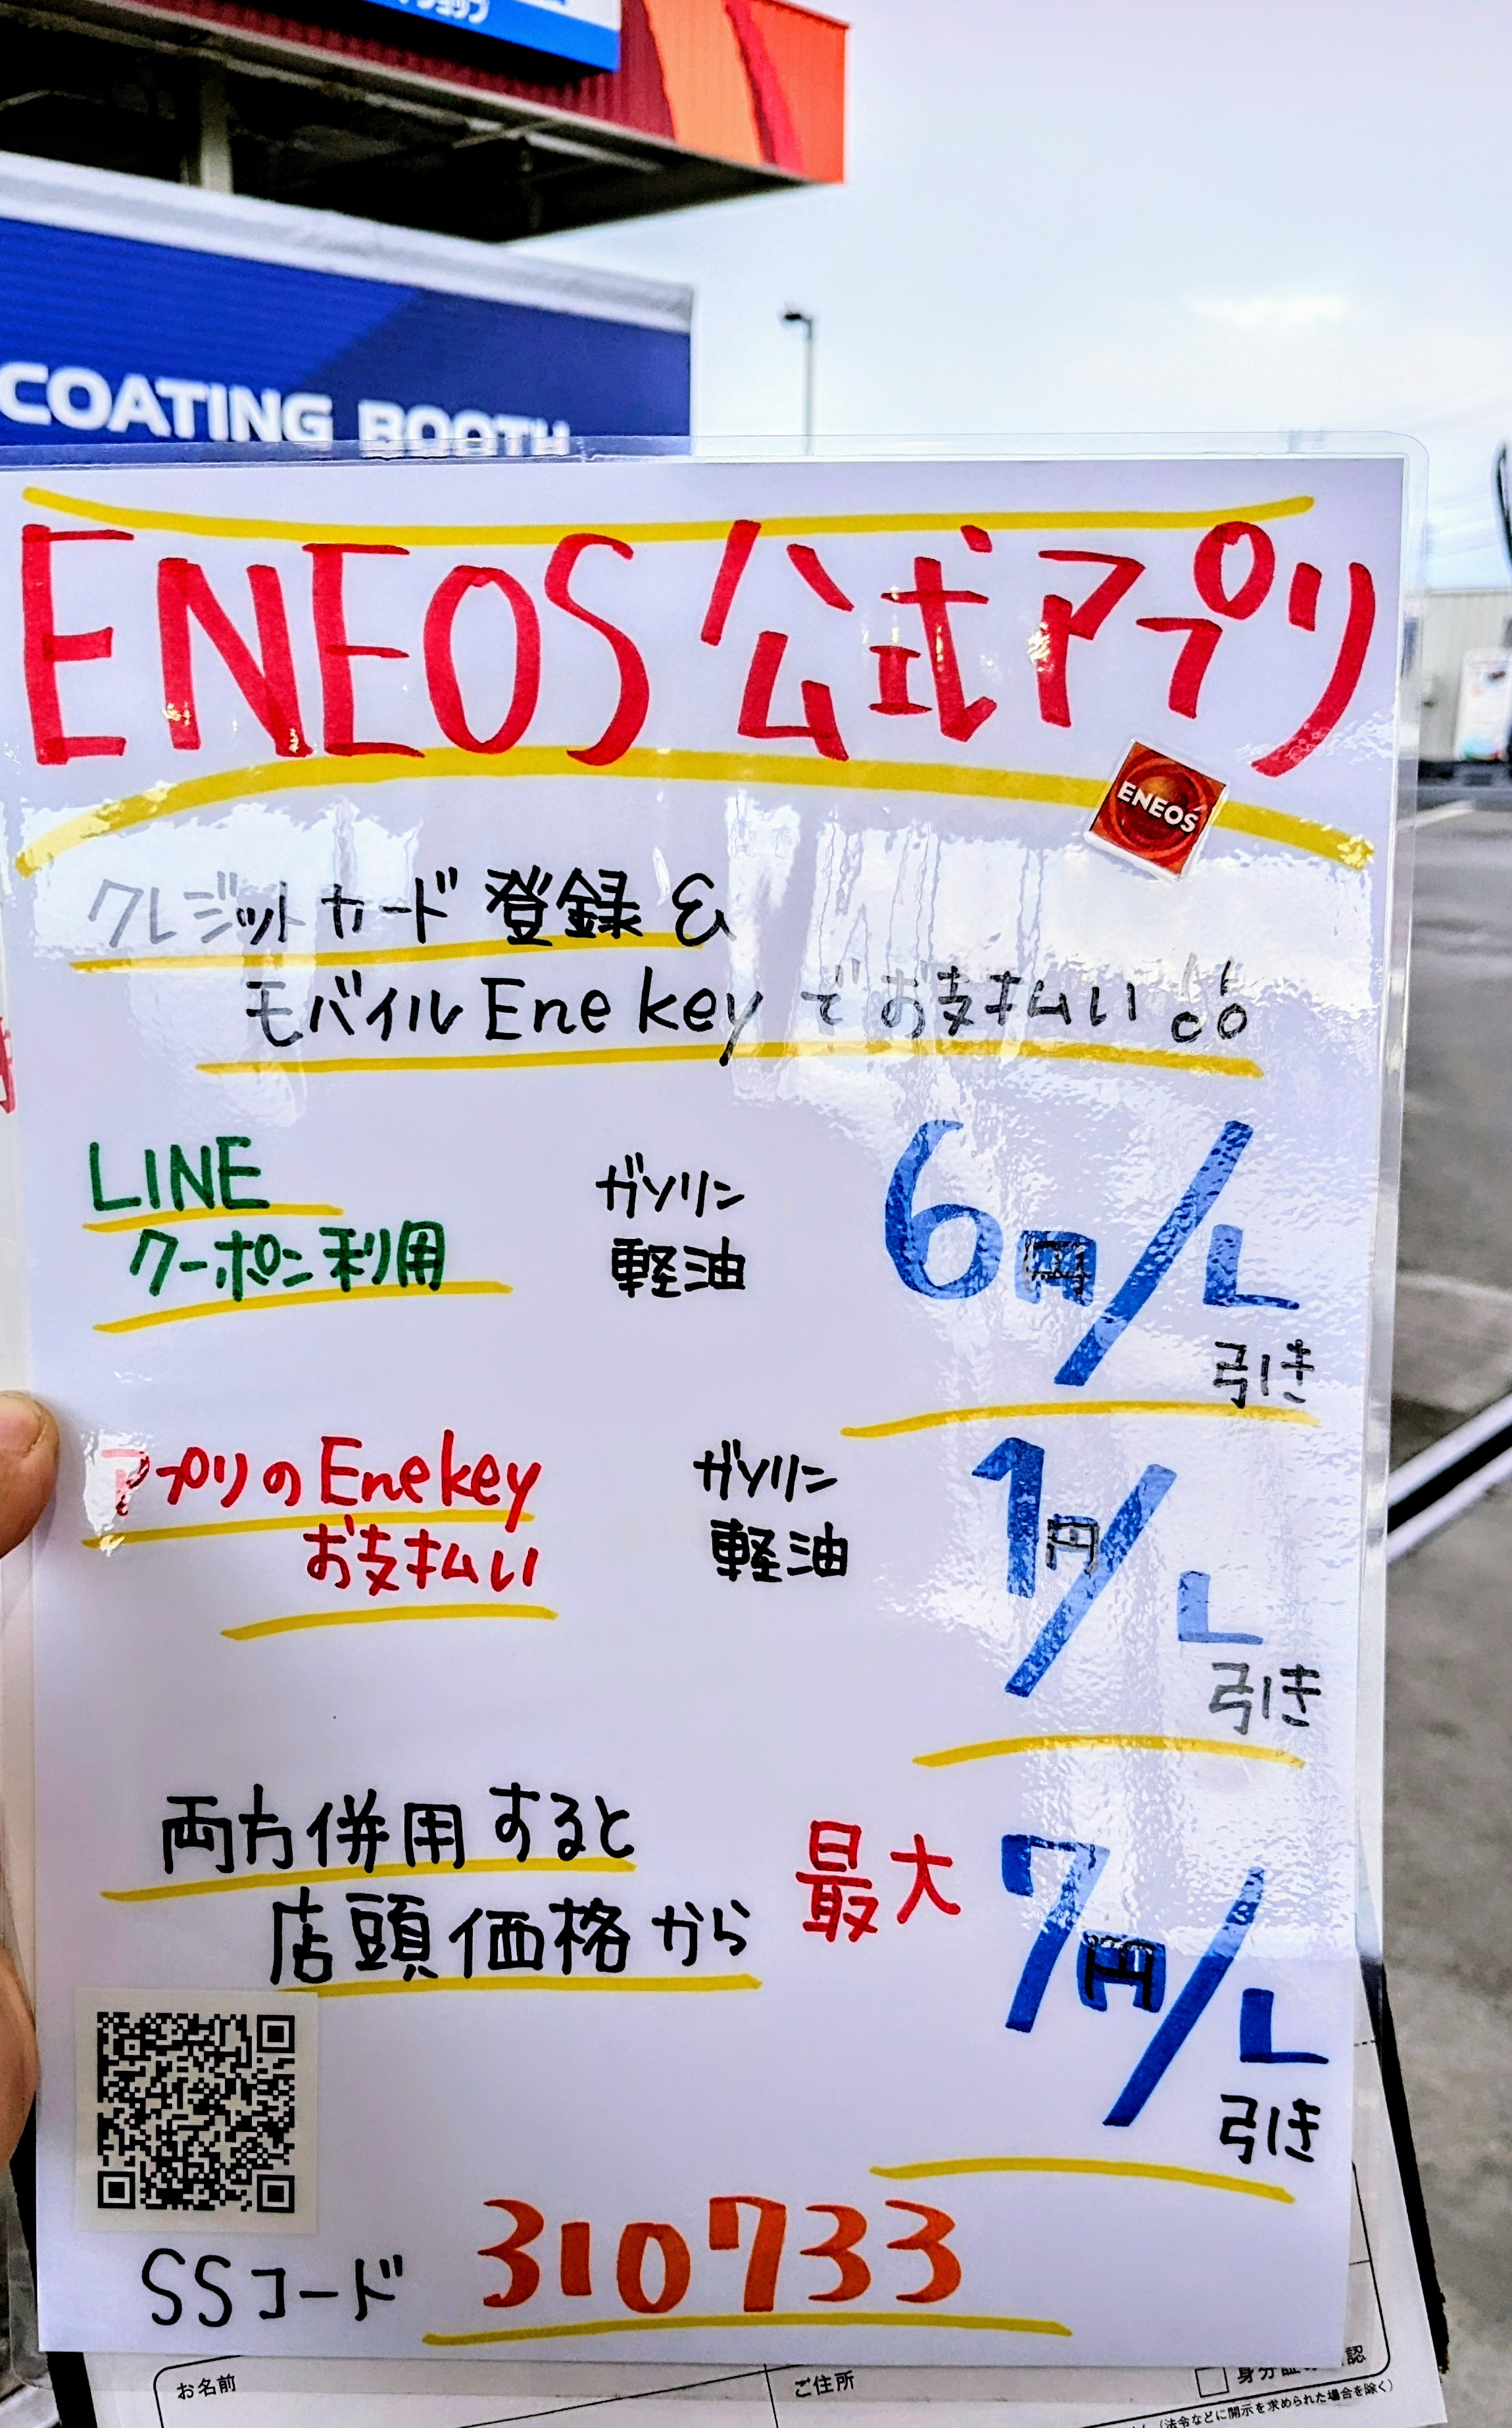 ョップ
COATING BOOTH
ENEOS 公式アプリ
ENEOS
クレジットカード登録&
モバイルEnekeyでお支払い!!
LINE
クーポン利用
ガソリン
軽油
6円/L
引き
アプリのEnekey
お支払い
ガソリン
軽油
1円/L
引き
両方併用すると
店頭価格から
最大
7円/L
引き
SSコード 310733
お名前
ご住所
(法令などに開示を求められた場合を除く)